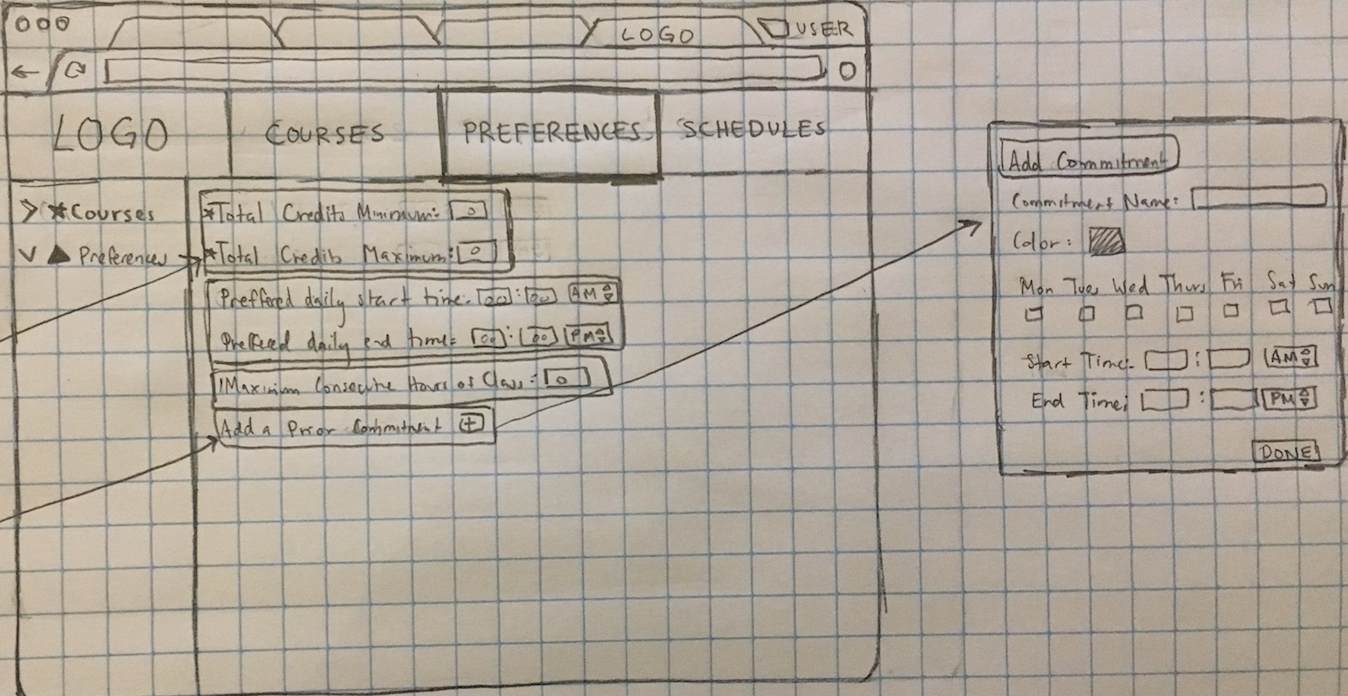 LOGO
USER
LOGO
COURSES
PREFERENCES
SCHEDULES
> *Courses
V ▲ Preferences
*Total Credits Minimum: 0
*Total Credits Maximum: 0
Preffered daily start time: 00:00 AM
Preffered daily end time: 00:00 PM
!Maximum Consecutive Hours of Class: 0
Add a Prior Commitment +
Add Commitment
Commitment Name:
Color:
Mon Tues Wed Thurs Fri Sat Sun
Start Time: : AM
End Time: : PM
DONE